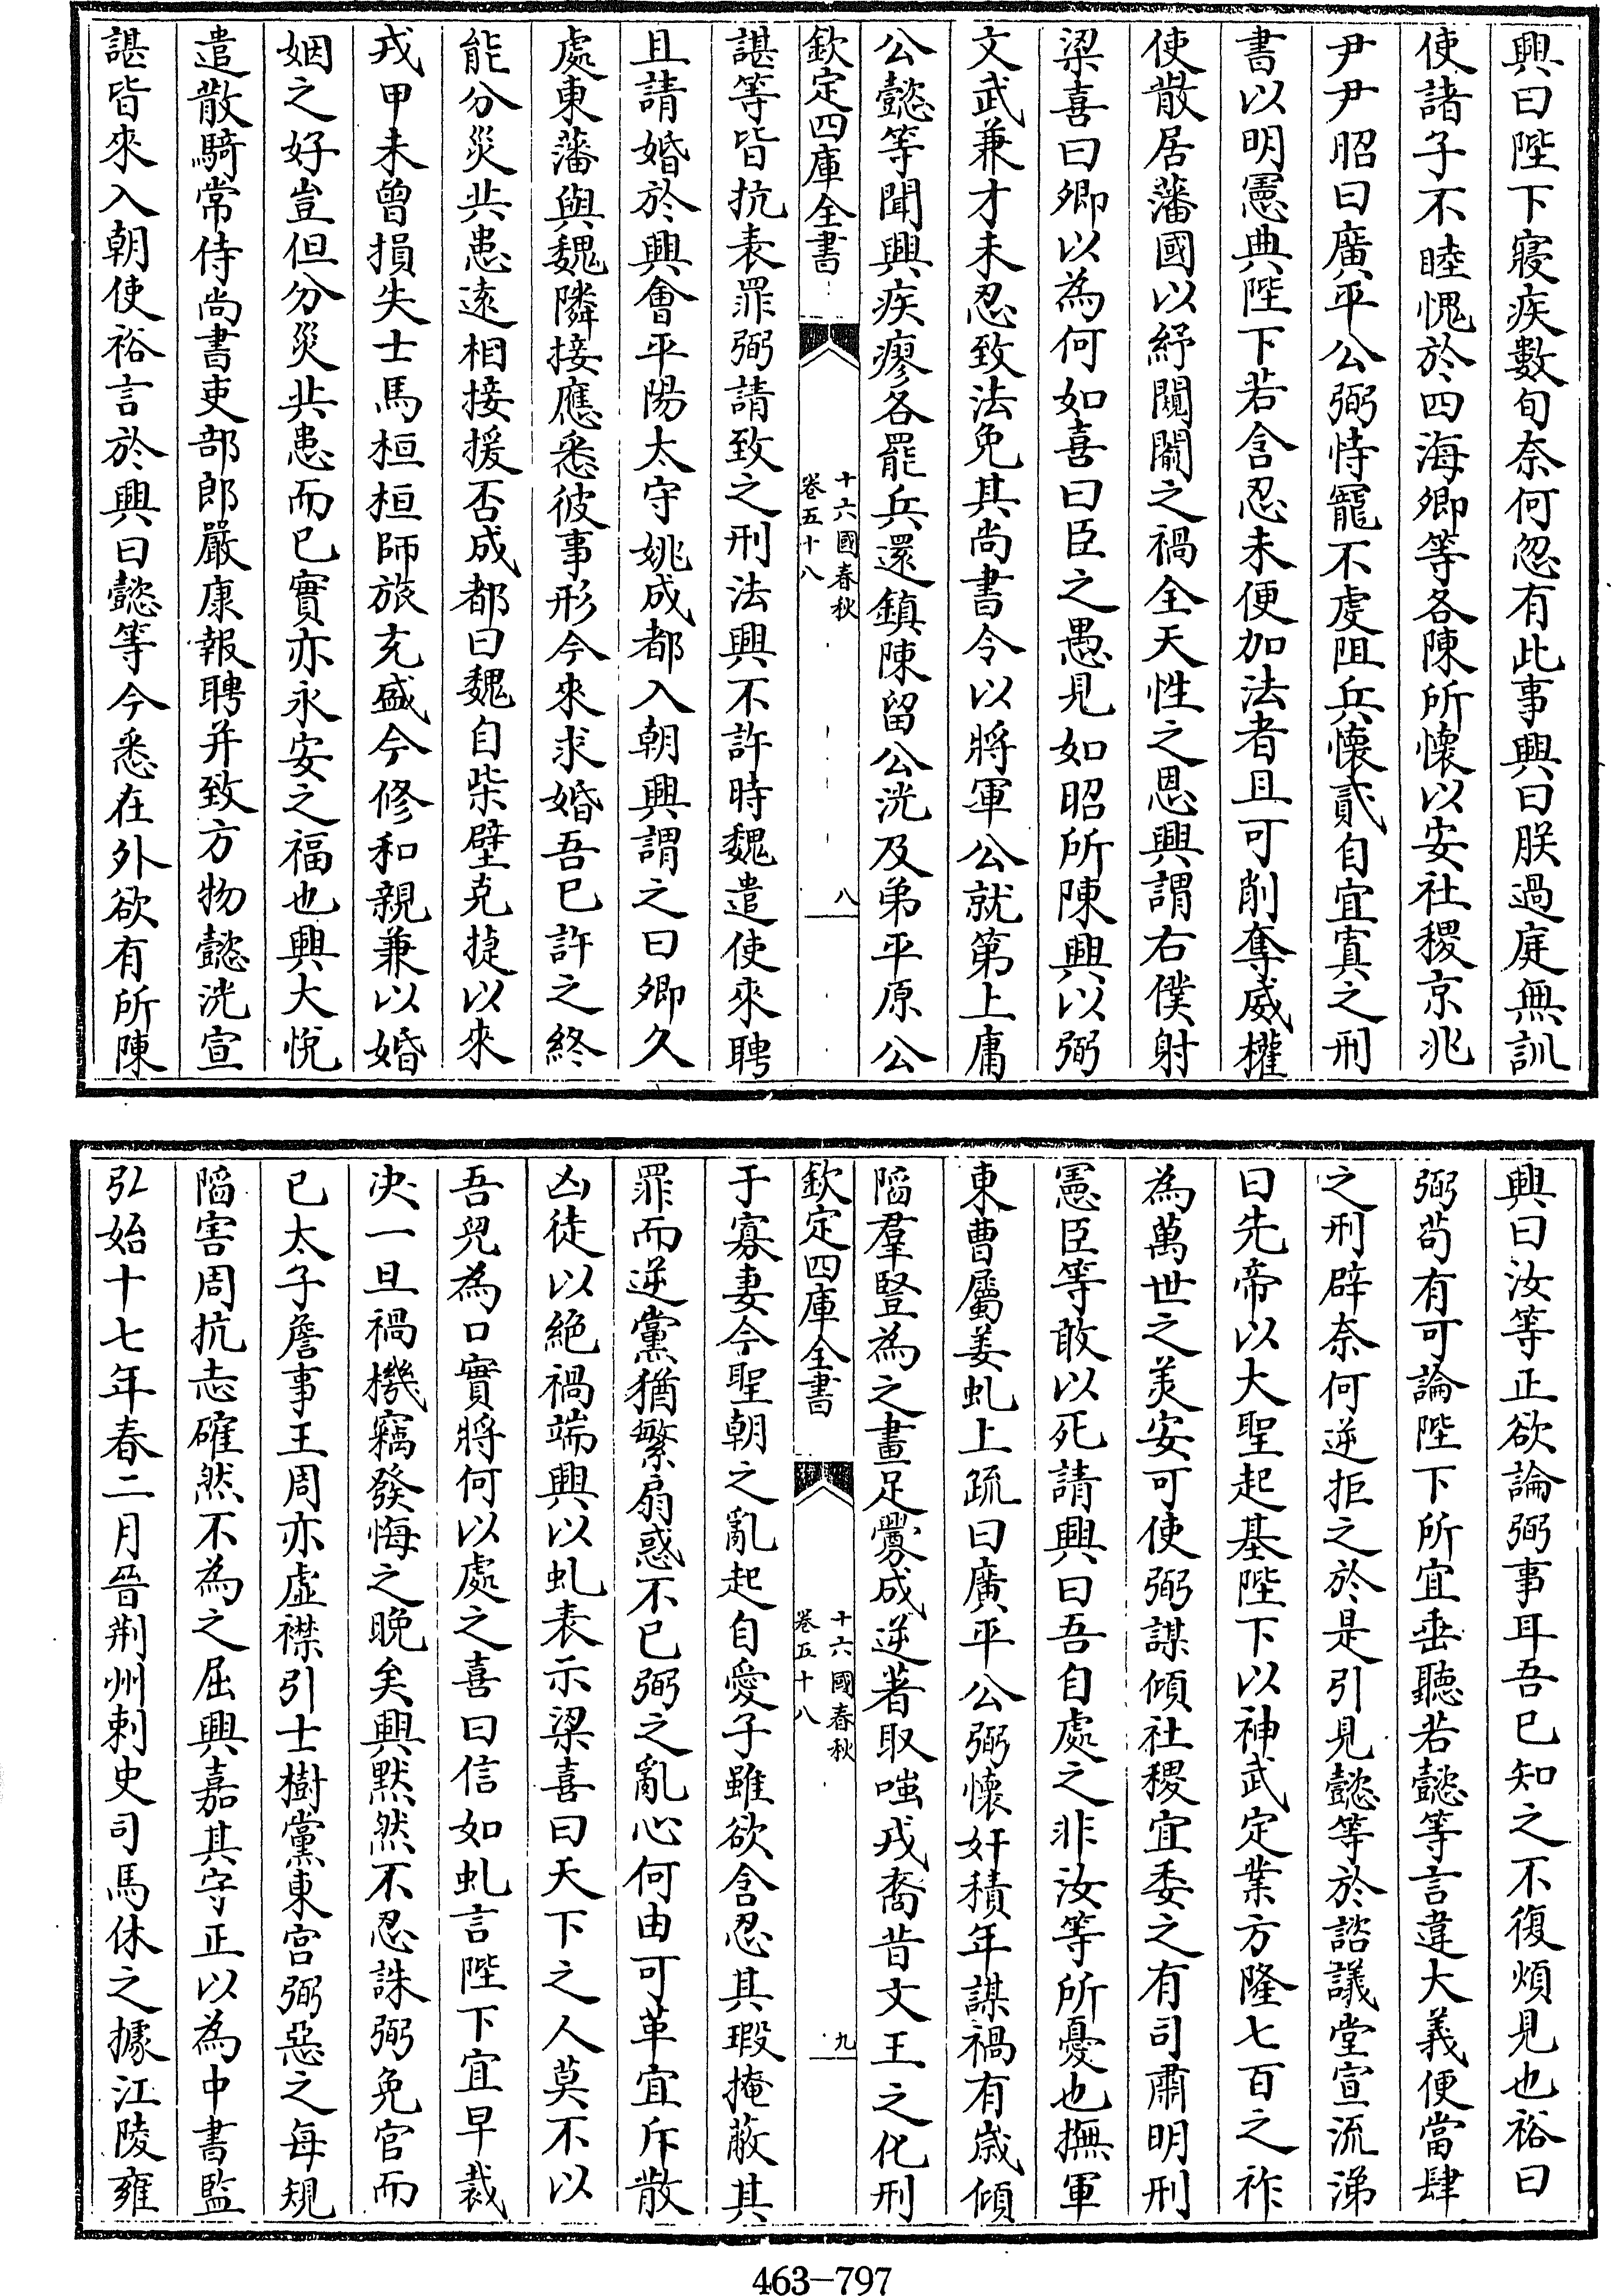 興曰陛下寢疾數旬奈何忽有此事興曰朕過庭無訓
使諸子不睦愧於四海卿等各陳所懷以安社稷京兆
尹尹昭曰廣平公弼恃寵不虔阻兵懷貳自宜寘之刑
書以明憲典陛下若含忍未便加法者且可削奪威權
使散居藩國以紓闚𨵦之禍全天性之恩興謂右僕射
梁喜曰卿以為何如喜曰臣之愚見如昭所陳興以弼
文武兼才未忍致法免其尚書令以將軍公就第上庸
公懿等聞興疾瘳各罷兵還鎮陳留公洸及弟平原公
欽定四庫全書
十六國春秋
卷五十八
八
諶等皆抗表罪弼請致之刑法興不許時魏遣使來聘
且請婚於興會平陽太守姚成都入朝興謂之曰卿久
處東藩與魏隣接應悉彼事形今來求婚吾已許之終
能分災共患遠相接援否成都曰魏自柴壁克捷以來
戎甲未曾損失士馬桓桓師旅充盛今修和親兼以婚
姻之好豈但分災共患而已實亦永安之福也興大悅
遣散騎常侍尚書吏部郎嚴康報聘并致方物懿洸宣
諶皆來入朝使裕言於興曰懿等今悉在外欲有所陳
興曰汝等正欲論弼事耳吾已知之不復煩見也裕曰
弼苟有可論陛下所宜垂聽若懿等言違大義便當肆
之刑辟奈何逆拒之於是引見懿等於諮議堂宣流涕
曰先帝以大聖起基陛下以神武定業方隆七百之祚
為萬世之美安可使弼謀傾社稷宜委之有司肅明刑
憲臣等敢以死請興曰吾自處之非汝等所憂也撫軍
東曹屬姜虬上疏曰廣平公弼懷奸積年謀禍有歲傾
陷羣豎為之畫足釁成逆著取嗤戎裔昔文王之化刑
欽定四庫全書
十六國春秋
卷五十八
九
于寡妻今聖朝之亂起自愛子雖欲含忍其瑕掩蔽其
罪而逆黨猶繁扇惑不已弼之亂心何由可革宜斥散
凶徒以絕禍端興以虬表示梁喜曰天下之人莫不以
吾兒為口實將何以處之喜曰信如虬言陛下宜早裁
決一旦禍機竊發悔之晚矣興默然不忍誅弼免官而
已太子詹事王周亦虛襟引士樹黨東宮弼惡之每規
陷害周抗志確然不為之屈興嘉其守正以為中書監
弘始十七年春二月晉荆州刺史司馬休之據江陵雍
463-797